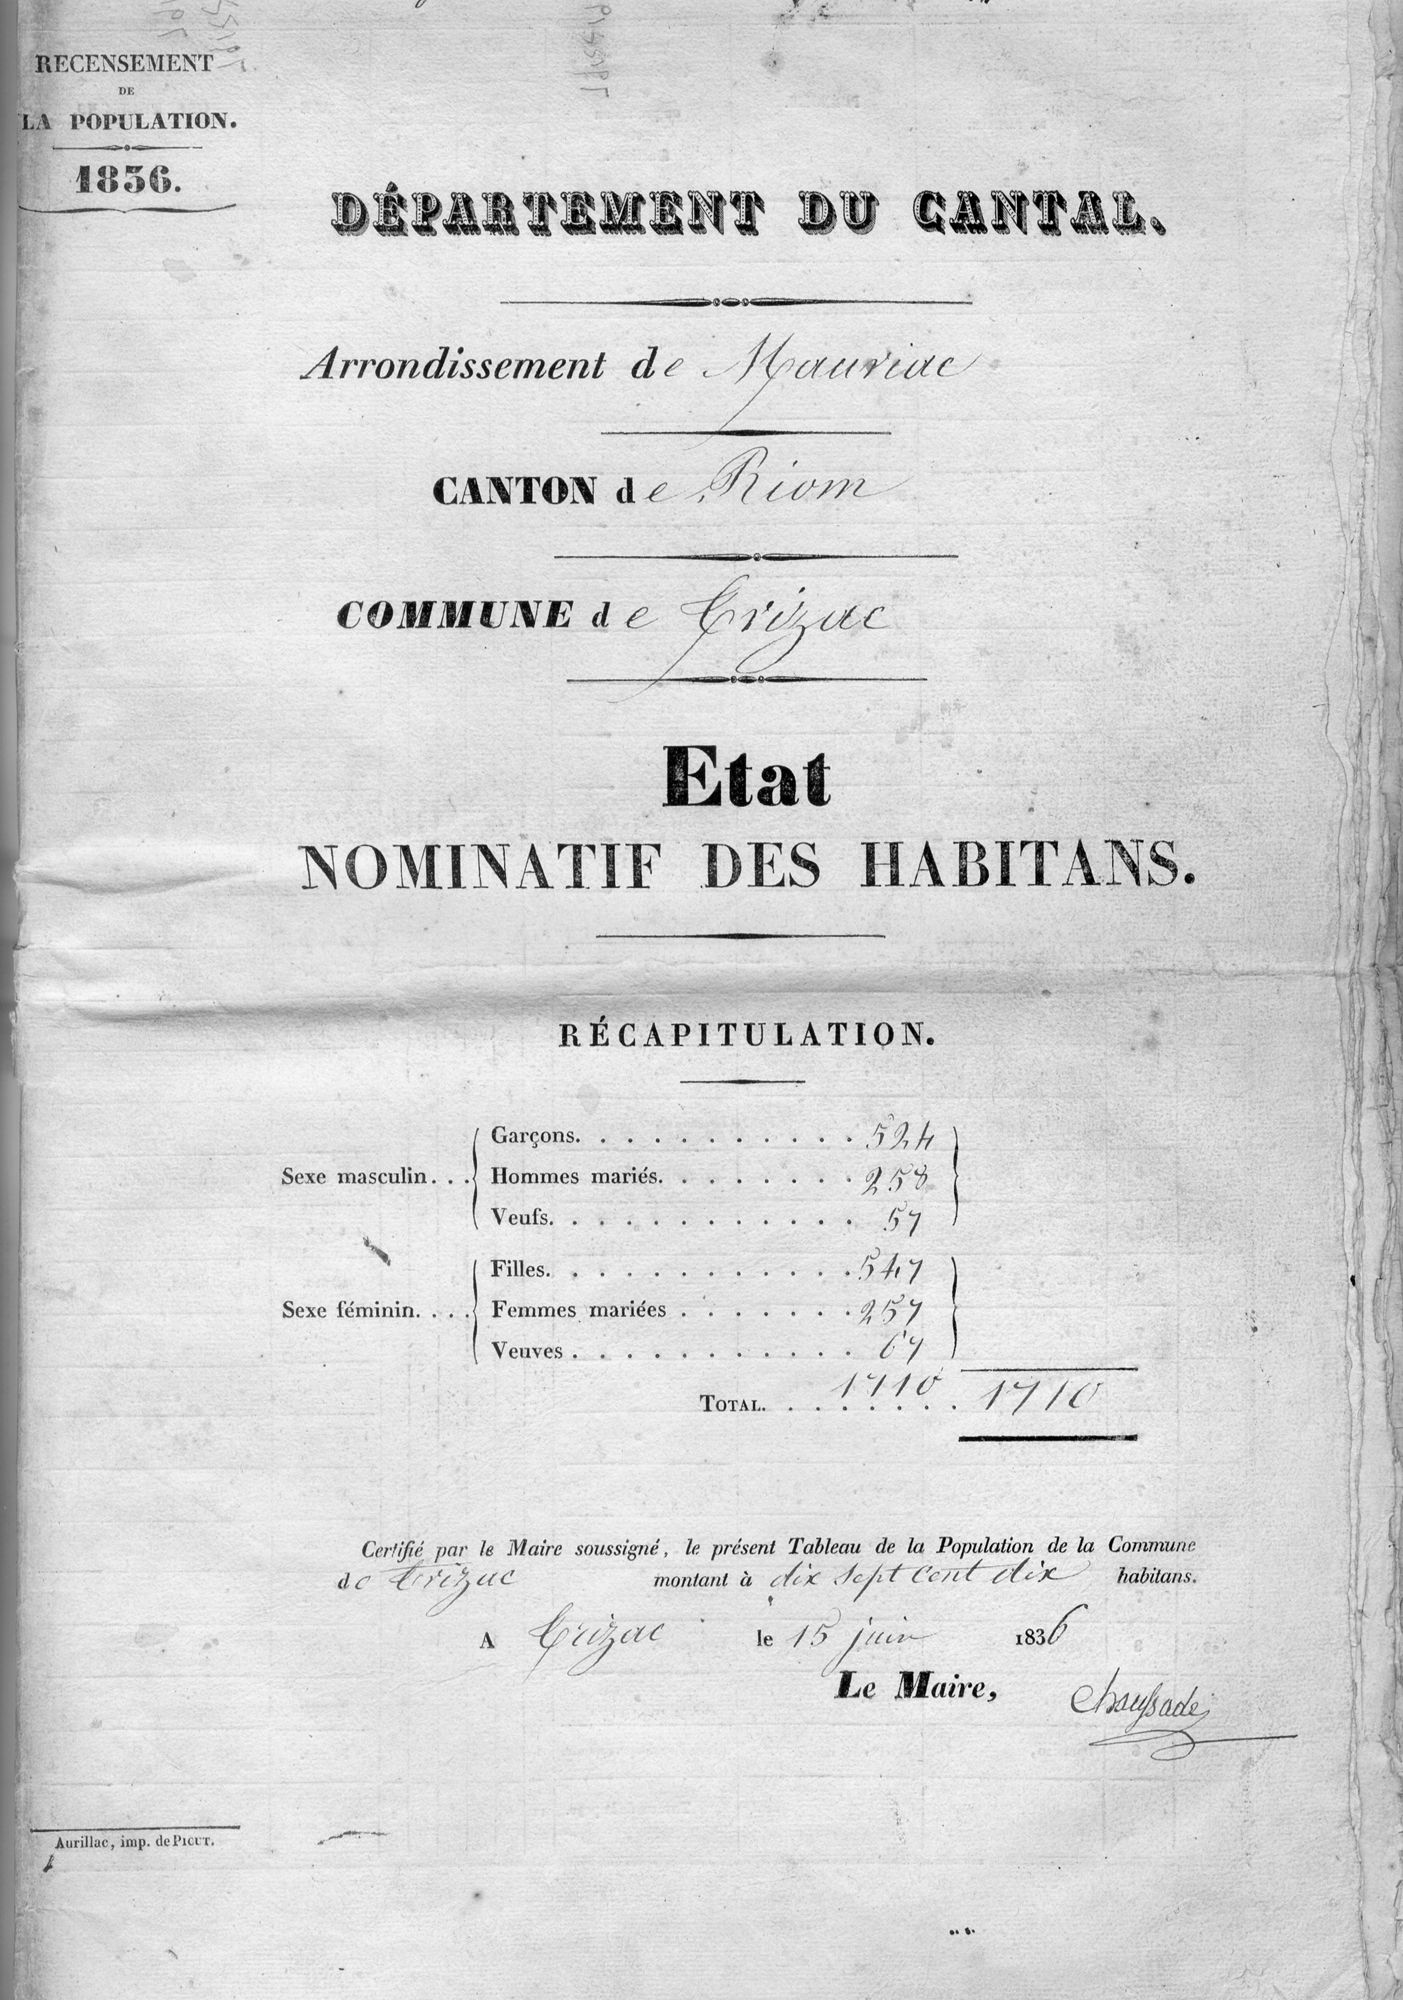 RECENSEMENT
DE
LA POPULATION.
1836.
DÉPARTEMENT DU CANTAL.
Arrondissement de Mauriac
CANTON de Riom
COMMUNE de Trizac
Etat
NOMINATIF DES HABITANS.
RÉCAPITULATION.
Sexe masculin...
Garçons. . . . . . . . . . . 524
Hommes mariés. . . . . . . . 258
Veufs. . . . . . . . . . . . 57
Sexe féminin....
Filles. . . . . . . . . . . . 547
Femmes mariées . . . . . . . 257
Veuves . . . . . . . . . . . 67
TOTAL. . . . . . . . 1710 1710
Certifié par le Maire soussigné, le présent Tableau de la Population de la Commune
de Trizac montant à dix sept cent dix habitans.
A Trizac le 15 juin 1836
Le Maire,
Aurillac, imp. de PICUT.